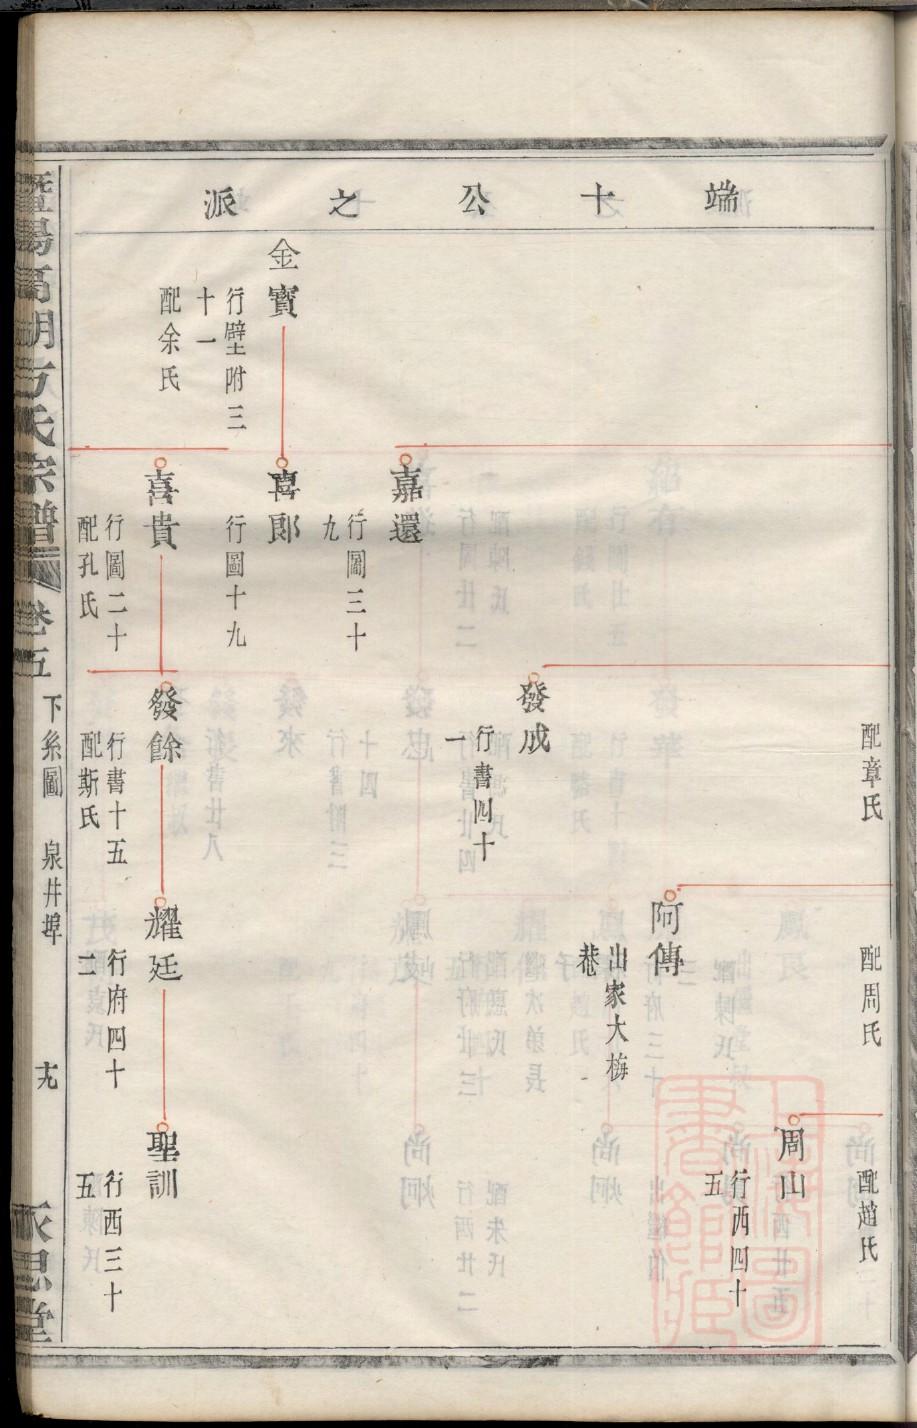 端十公之派
配章氏
配周氏
配趙氏
周山
行西四十
五
阿傳
出家大梅
巷
發成
行書四十
一
嘉還
行圖三十
九
金寶
行璧附三
十一
配余氏
喜郎
行圖十九
喜貴
行圖二十
配孔氏
發餘
行書十五
配斯氏
耀廷
行府四十
二
聖訓
行西三十
五
暨陽高湖方氏宗譜
卷五
下系圖
泉井埠
永思堂